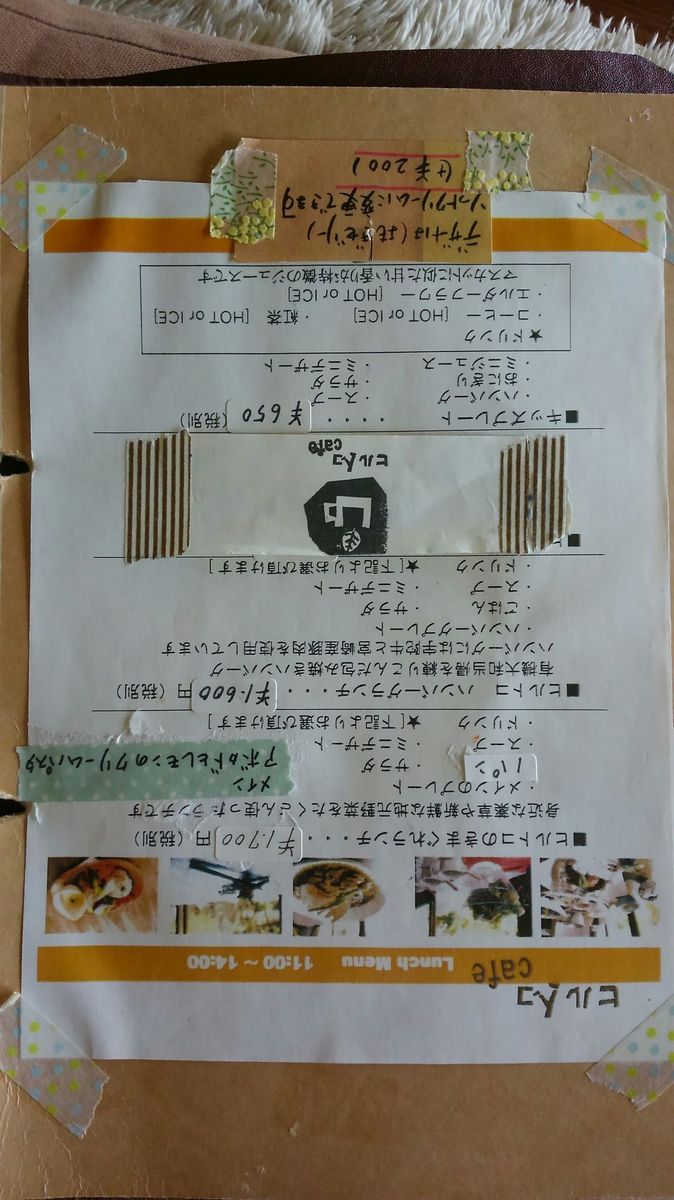 ヒルトコ
cafe
Lunch Menu 11:00~14:00
■ヒルトコのきまぐれランチ・・・・¥1.700 円(税別)
身近な薬草や新鮮な地元野菜をたくさん使ったランチです
・メインのプレート
・パン ・サラダ
・スープ ・ミニデザート
・ドリンク ★[下記よりお選び頂けます]
メイン
アボカドとレモンのクリームパスタ
■ヒルトコ ハンバーグランチ・・・・¥1.600 円(税別)
有機大和当帰を練りこんだ包み焼きハンバーグ
ハンバーグには宇陀牛と宮崎産豚肉を使用しています
・ハンバーグプレート
・ごはん ・サラダ
・スープ ・ミニデザート
・ドリンク ★[下記よりお選び頂けます]
ヒルトコ
cafe
■キッズプレート ・・・・ ¥650 (税別)
・ハンバーグ ・スープ
・おにぎり ・サラダ
・ミニジュース ・ミニデザート
★ドリンク
・コーヒー [HOT or ICE] ・紅茶 [HOT or ICE]
・エルダーフラワー [HOT or ICE]
マスカットに似た甘い香りが特徴のジュースです
デザートは
ソフトクリームに変更できます
(+¥200)